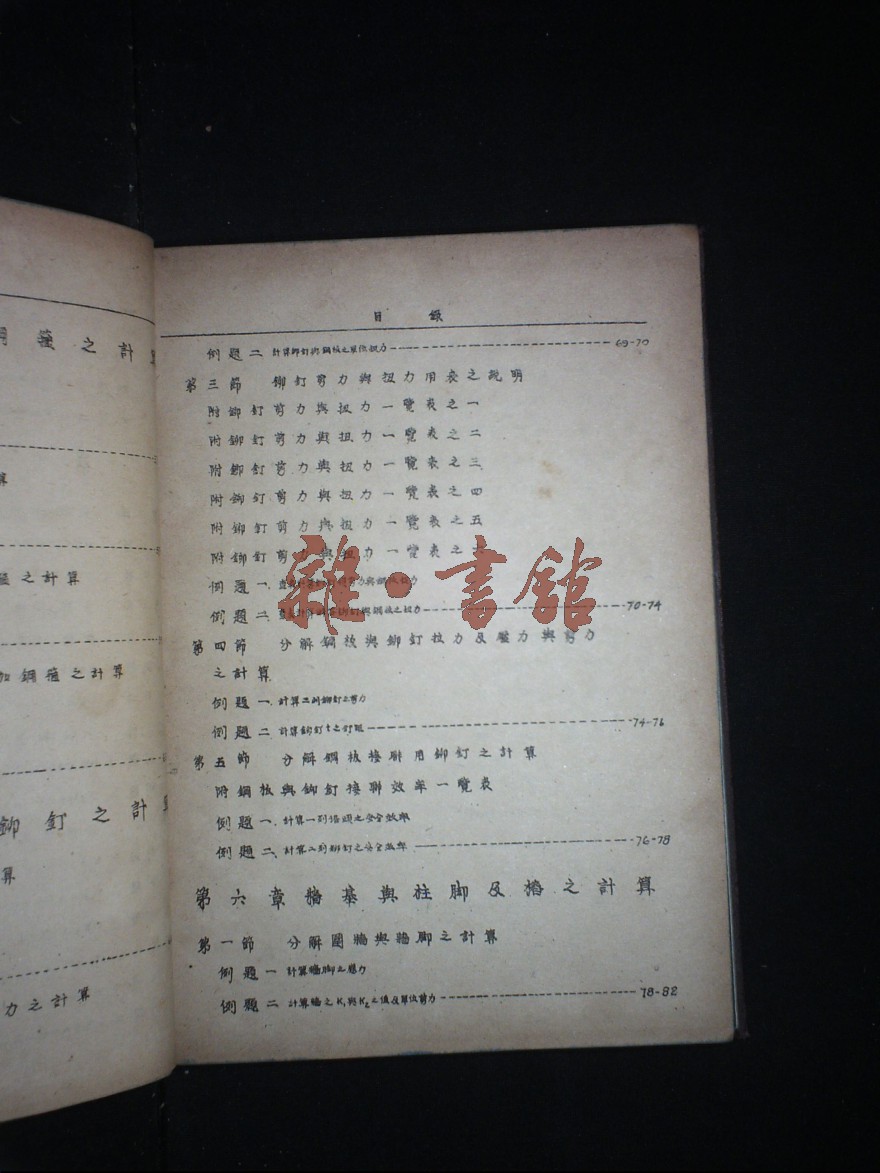 目錄
例題二 計算鉚釘與鋼板之單位扭力 69-70
第三節 鉚釘剪力與扭力用表之說明
附鉚釘剪力與扭力一覽表之一
附鉚釘剪力與扭力一覽表之二
附鉚釘剪力與扭力一覽表之三
附鉚釘剪力與扭力一覽表之四
附鉚釘剪力與扭力一覽表之五
附鉚釘剪力與扭力一覽表之六
例題一
例題二 70-74
第四節 分解鋼板與鉚釘拉力及壓力與剪力
之計算
例題一 計算三州鉚釘之剪力
例題二 計算鉚釘 74-76
第五節 分解鋼板接聯用鉚釘之計算
附鋼板與鉚釘接聯效率一覽表
例題一 計算一列 之安全效率
例題二 計算二列鉚釘之安全效率 76-78
第六章 牆基與柱脚及樁之計算
第一節 分解圍牆與牆脚之計算
例題一 計算牆脚之應力
例題二 計算牆之K₁與K₂之值及單位剪力 78-82
之計算
算
之計算
加鋼箍之計算
鉚釘之計
算
力之計算
雜·書館